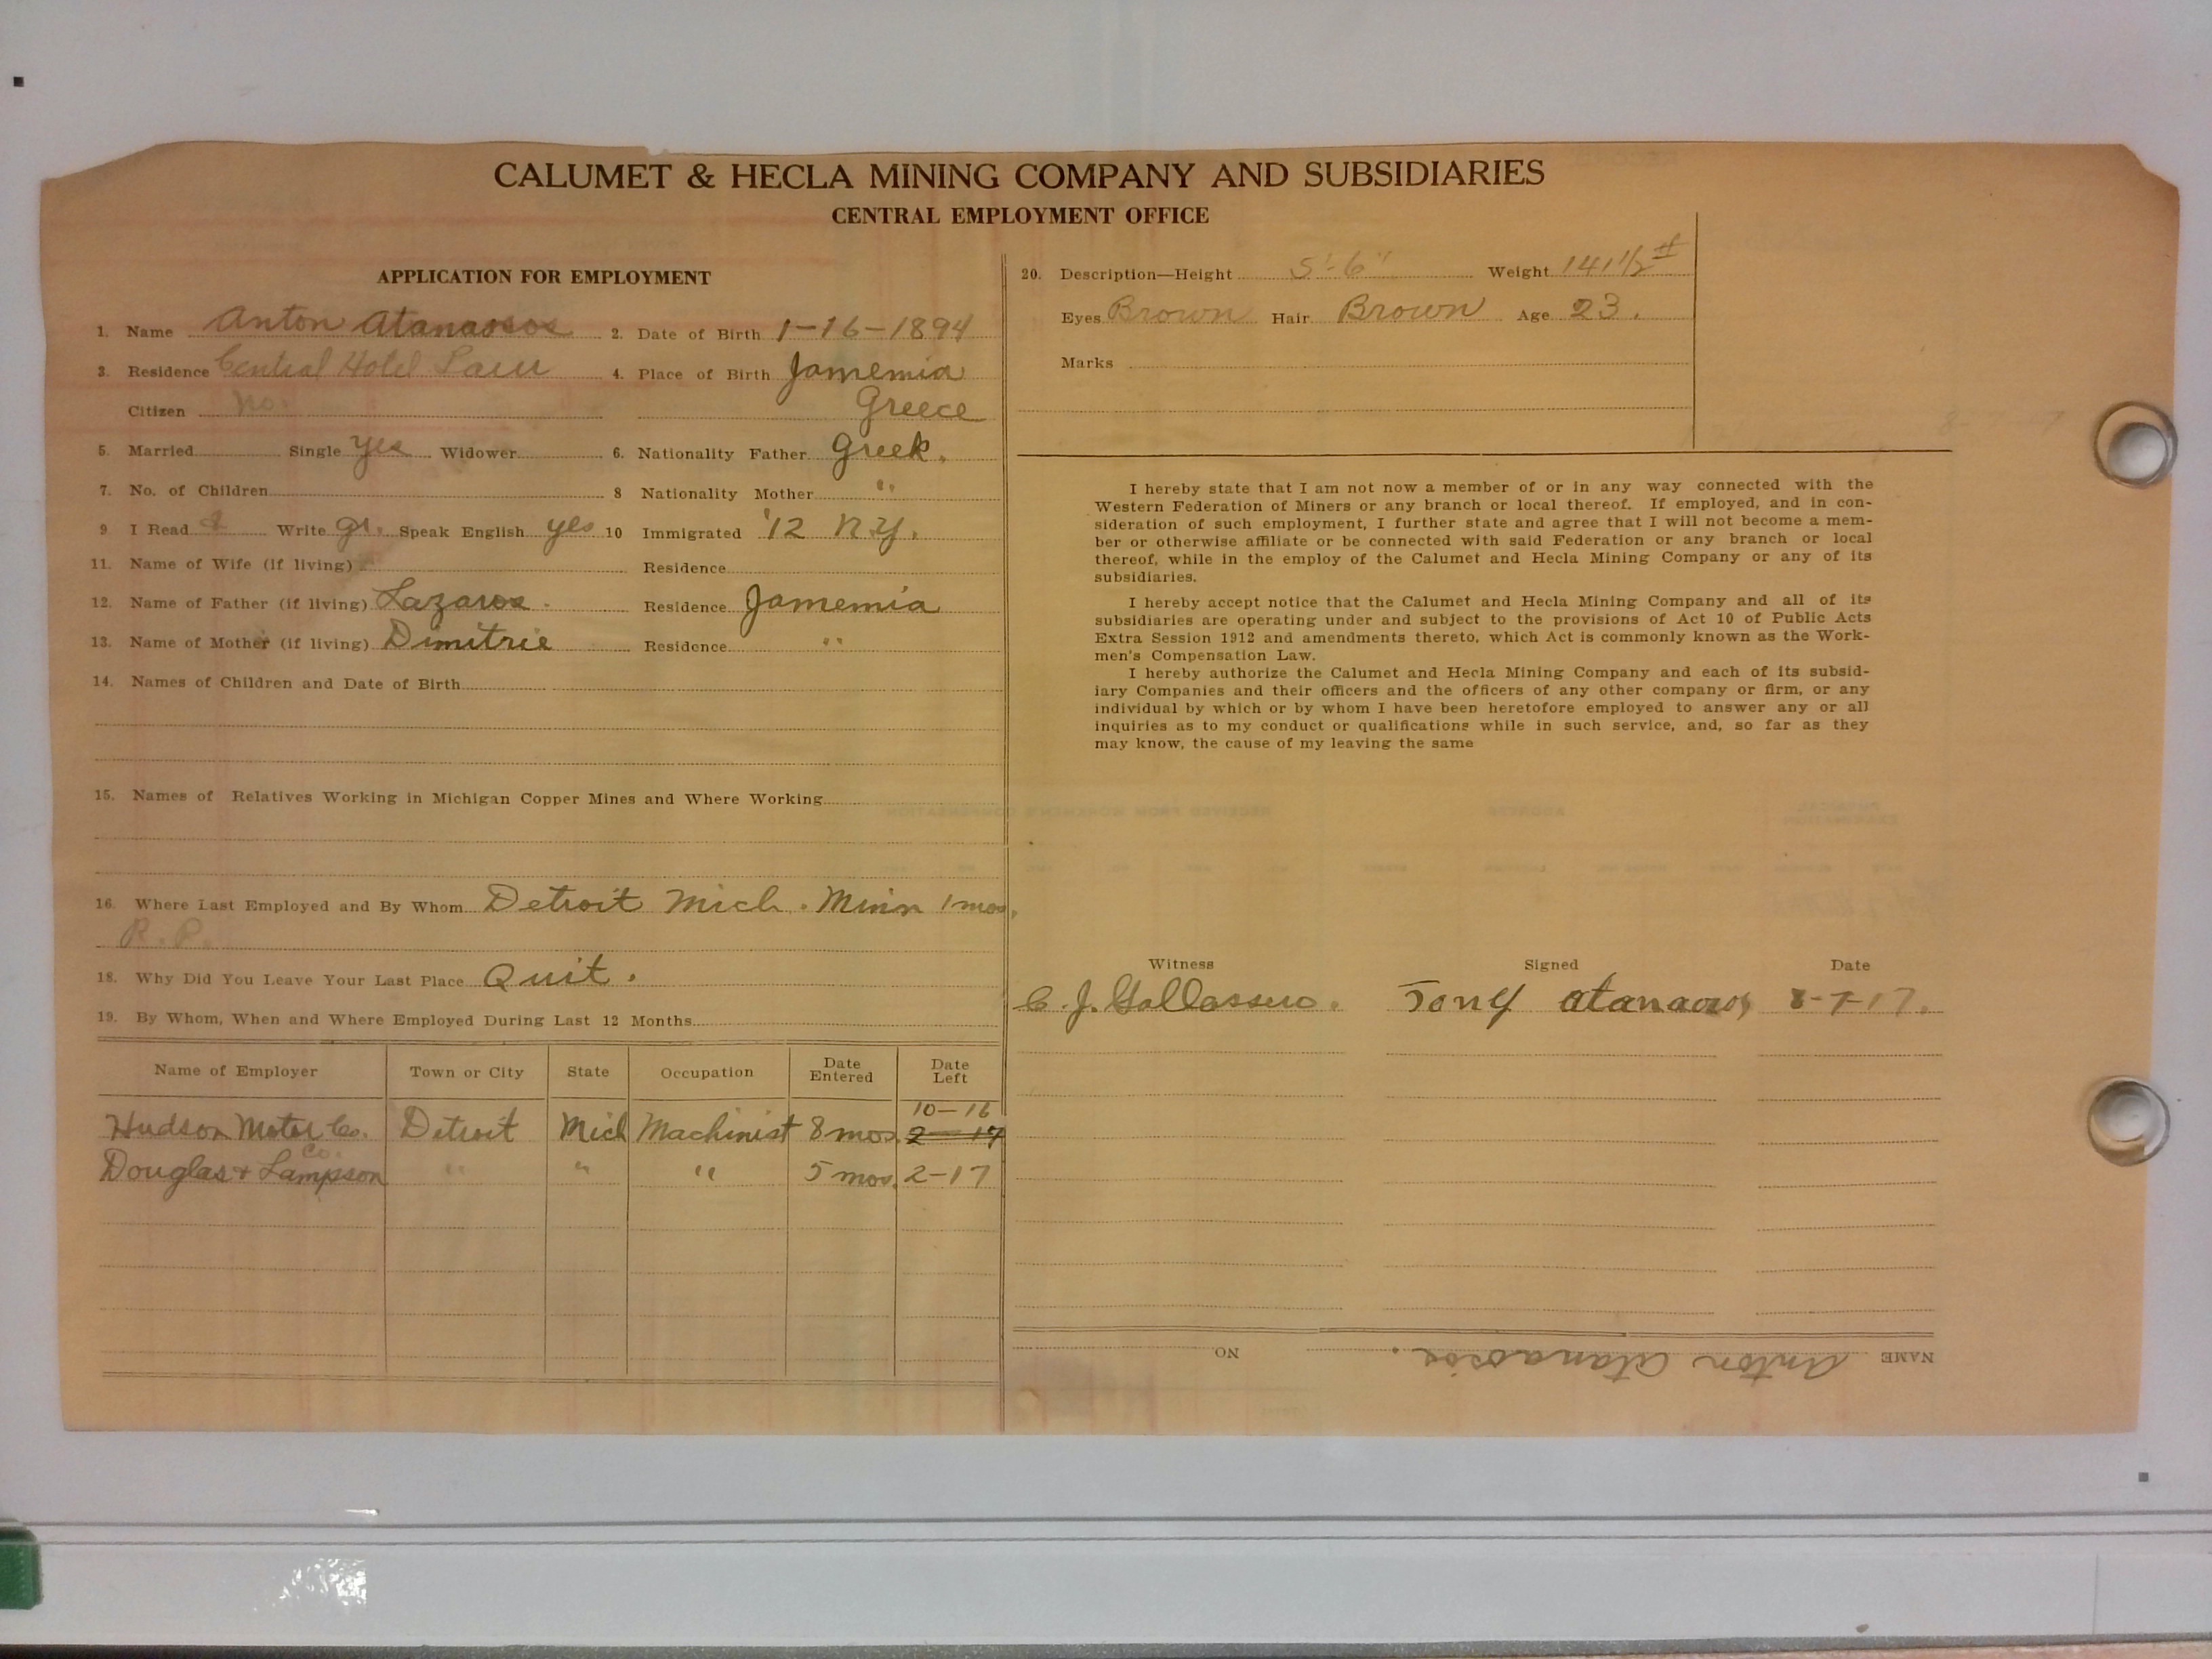 CALUMET & HECLA MINING COMPANY AND SUBSIDIARIES
CENTRAL EMPLOYMENT OFFICE
APPLICATION FOR EMPLOYMENT
1. Name Anton Atanasos 2. Date of Birth 1-16-1894
3. Residence Central Hotel 4. Place of Birth Jamemia
Citizen no. Greece
5. Married Single yes Widower 6. Nationality Father Greek.
7. No. of Children 8 Nationality Mother "
9 I Read & Write gr. Speak English yes 10 Immigrated '12 N.Y.
11. Name of Wife (if living) Residence
12. Name of Father (if living) Lazaros. Residence Jamemia
13. Name of Mother (if living) Dimitrie Residence "
14. Names of Children and Date of Birth
15. Names of Relatives Working in Michigan Copper Mines and Where Working
16. Where Last Employed and By Whom Detroit Mich. Minn 1 mos.
R.P.
18. Why Did You Leave Your Last Place Quit.
19. By Whom, When and Where Employed During Last 12 Months
Name of Employer Town or City State Occupation Date Entered Date Left
Hudson Motor Co. Detroit Mich Machinist 8 mos. 2-17 10-16
Douglas & Lampson Co. " " " 5 mos. 2-17
20. Description—Height 5'-6" Weight 141 1/2 #
Eyes Brown Hair Brown Age 23.
Marks
I hereby state that I am not now a member of or in any way connected with the
Western Federation of Miners or any branch or local thereof. If employed, and in con-
sideration of such employment, I further state and agree that I will not become a mem-
ber or otherwise affiliate or be connected with said Federation or any branch or local
thereof, while in the employ of the Calumet and Hecla Mining Company or any of its
subsidiaries.
I hereby accept notice that the Calumet and Hecla Mining Company and all of its
subsidiaries are operating under and subject to the provisions of Act 10 of Public Acts
Extra Session 1912 and amendments thereto, which Act is commonly known as the Work-
men's Compensation Law.
I hereby authorize the Calumet and Hecla Mining Company and each of its subsid-
iary Companies and their officers and the officers of any other company or firm, or any
individual by which or by whom I have been heretofore employed to answer any or all
inquiries as to my conduct or qualifications while in such service, and, so far as they
may know, the cause of my leaving the same
Witness Signed Date
C. J. Tony 8-7-17.
NAME Anton Atanasos. NO